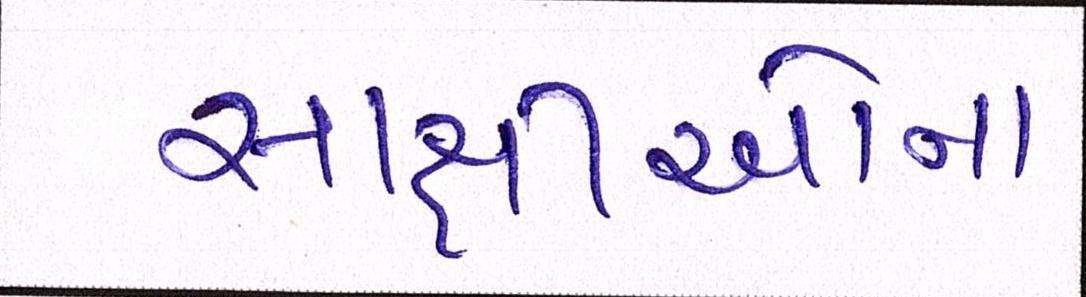 સાક્ષીઓના